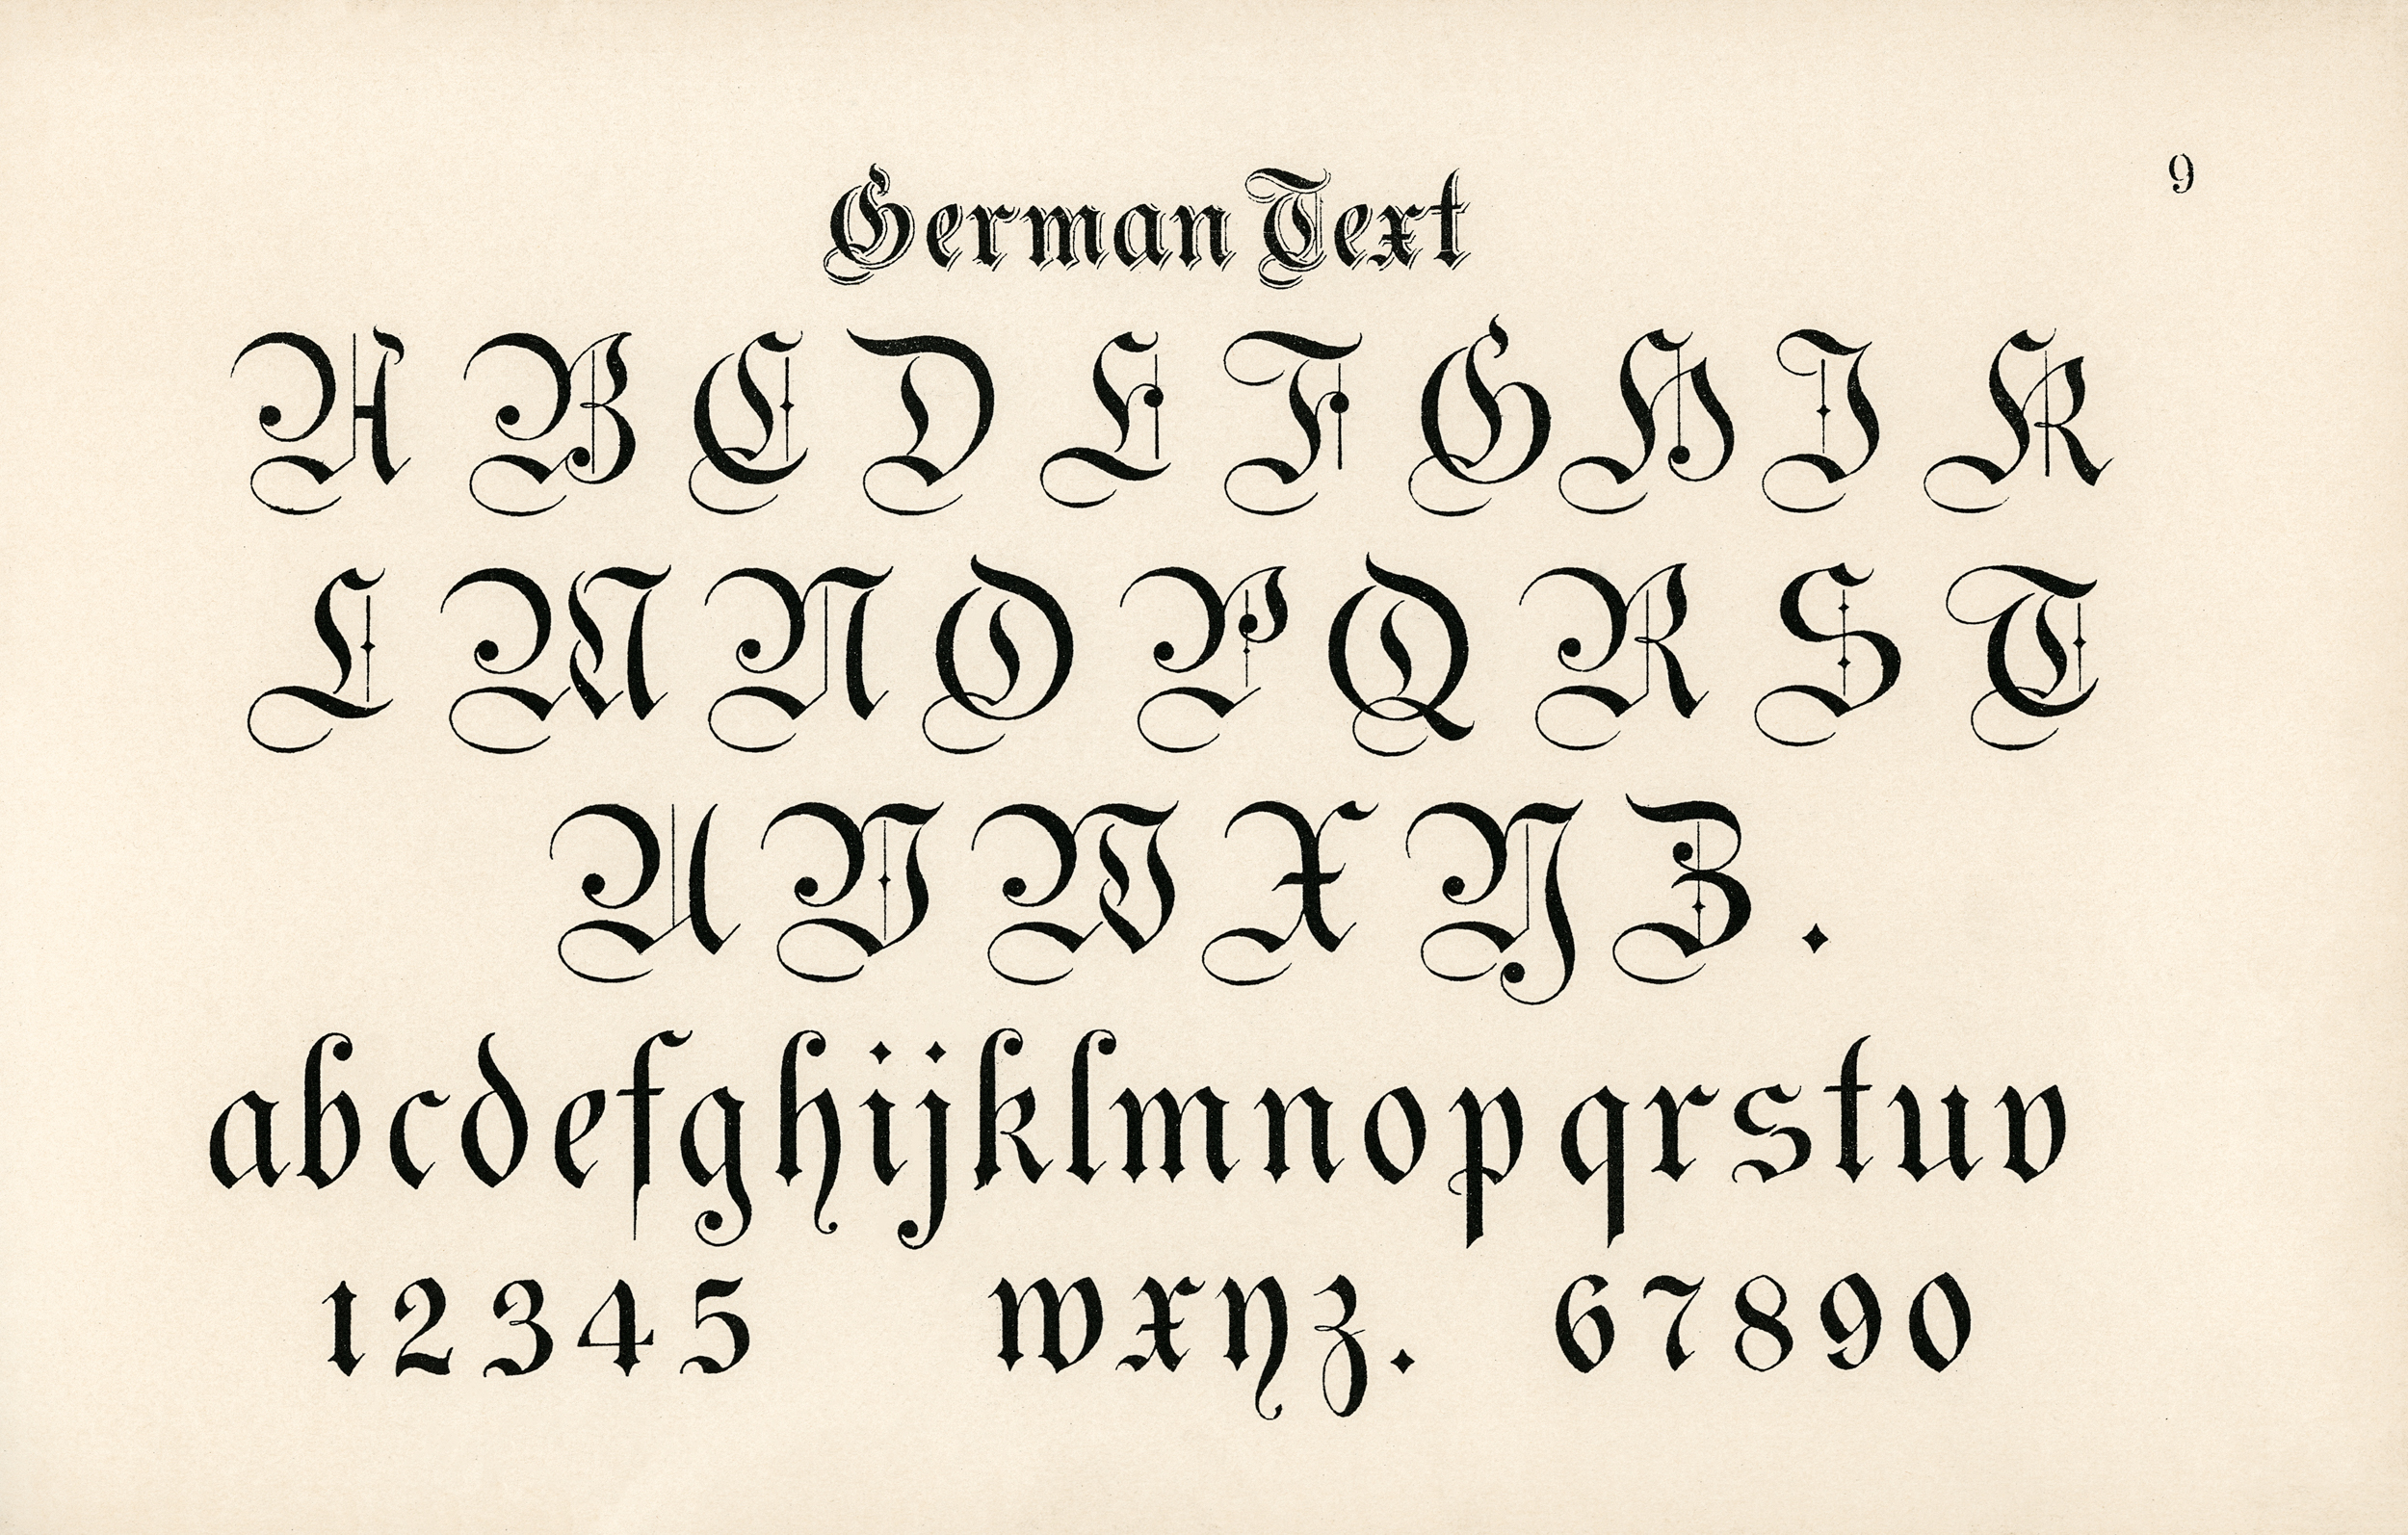 9
German Text
A B C D E F G H I K
L M N O P Q R S T
U V W X Y Z .
a b c d e f g h i j k l m n o p q r s t u v
1 2 3 4 5 w x y z . 6 7 8 9 0